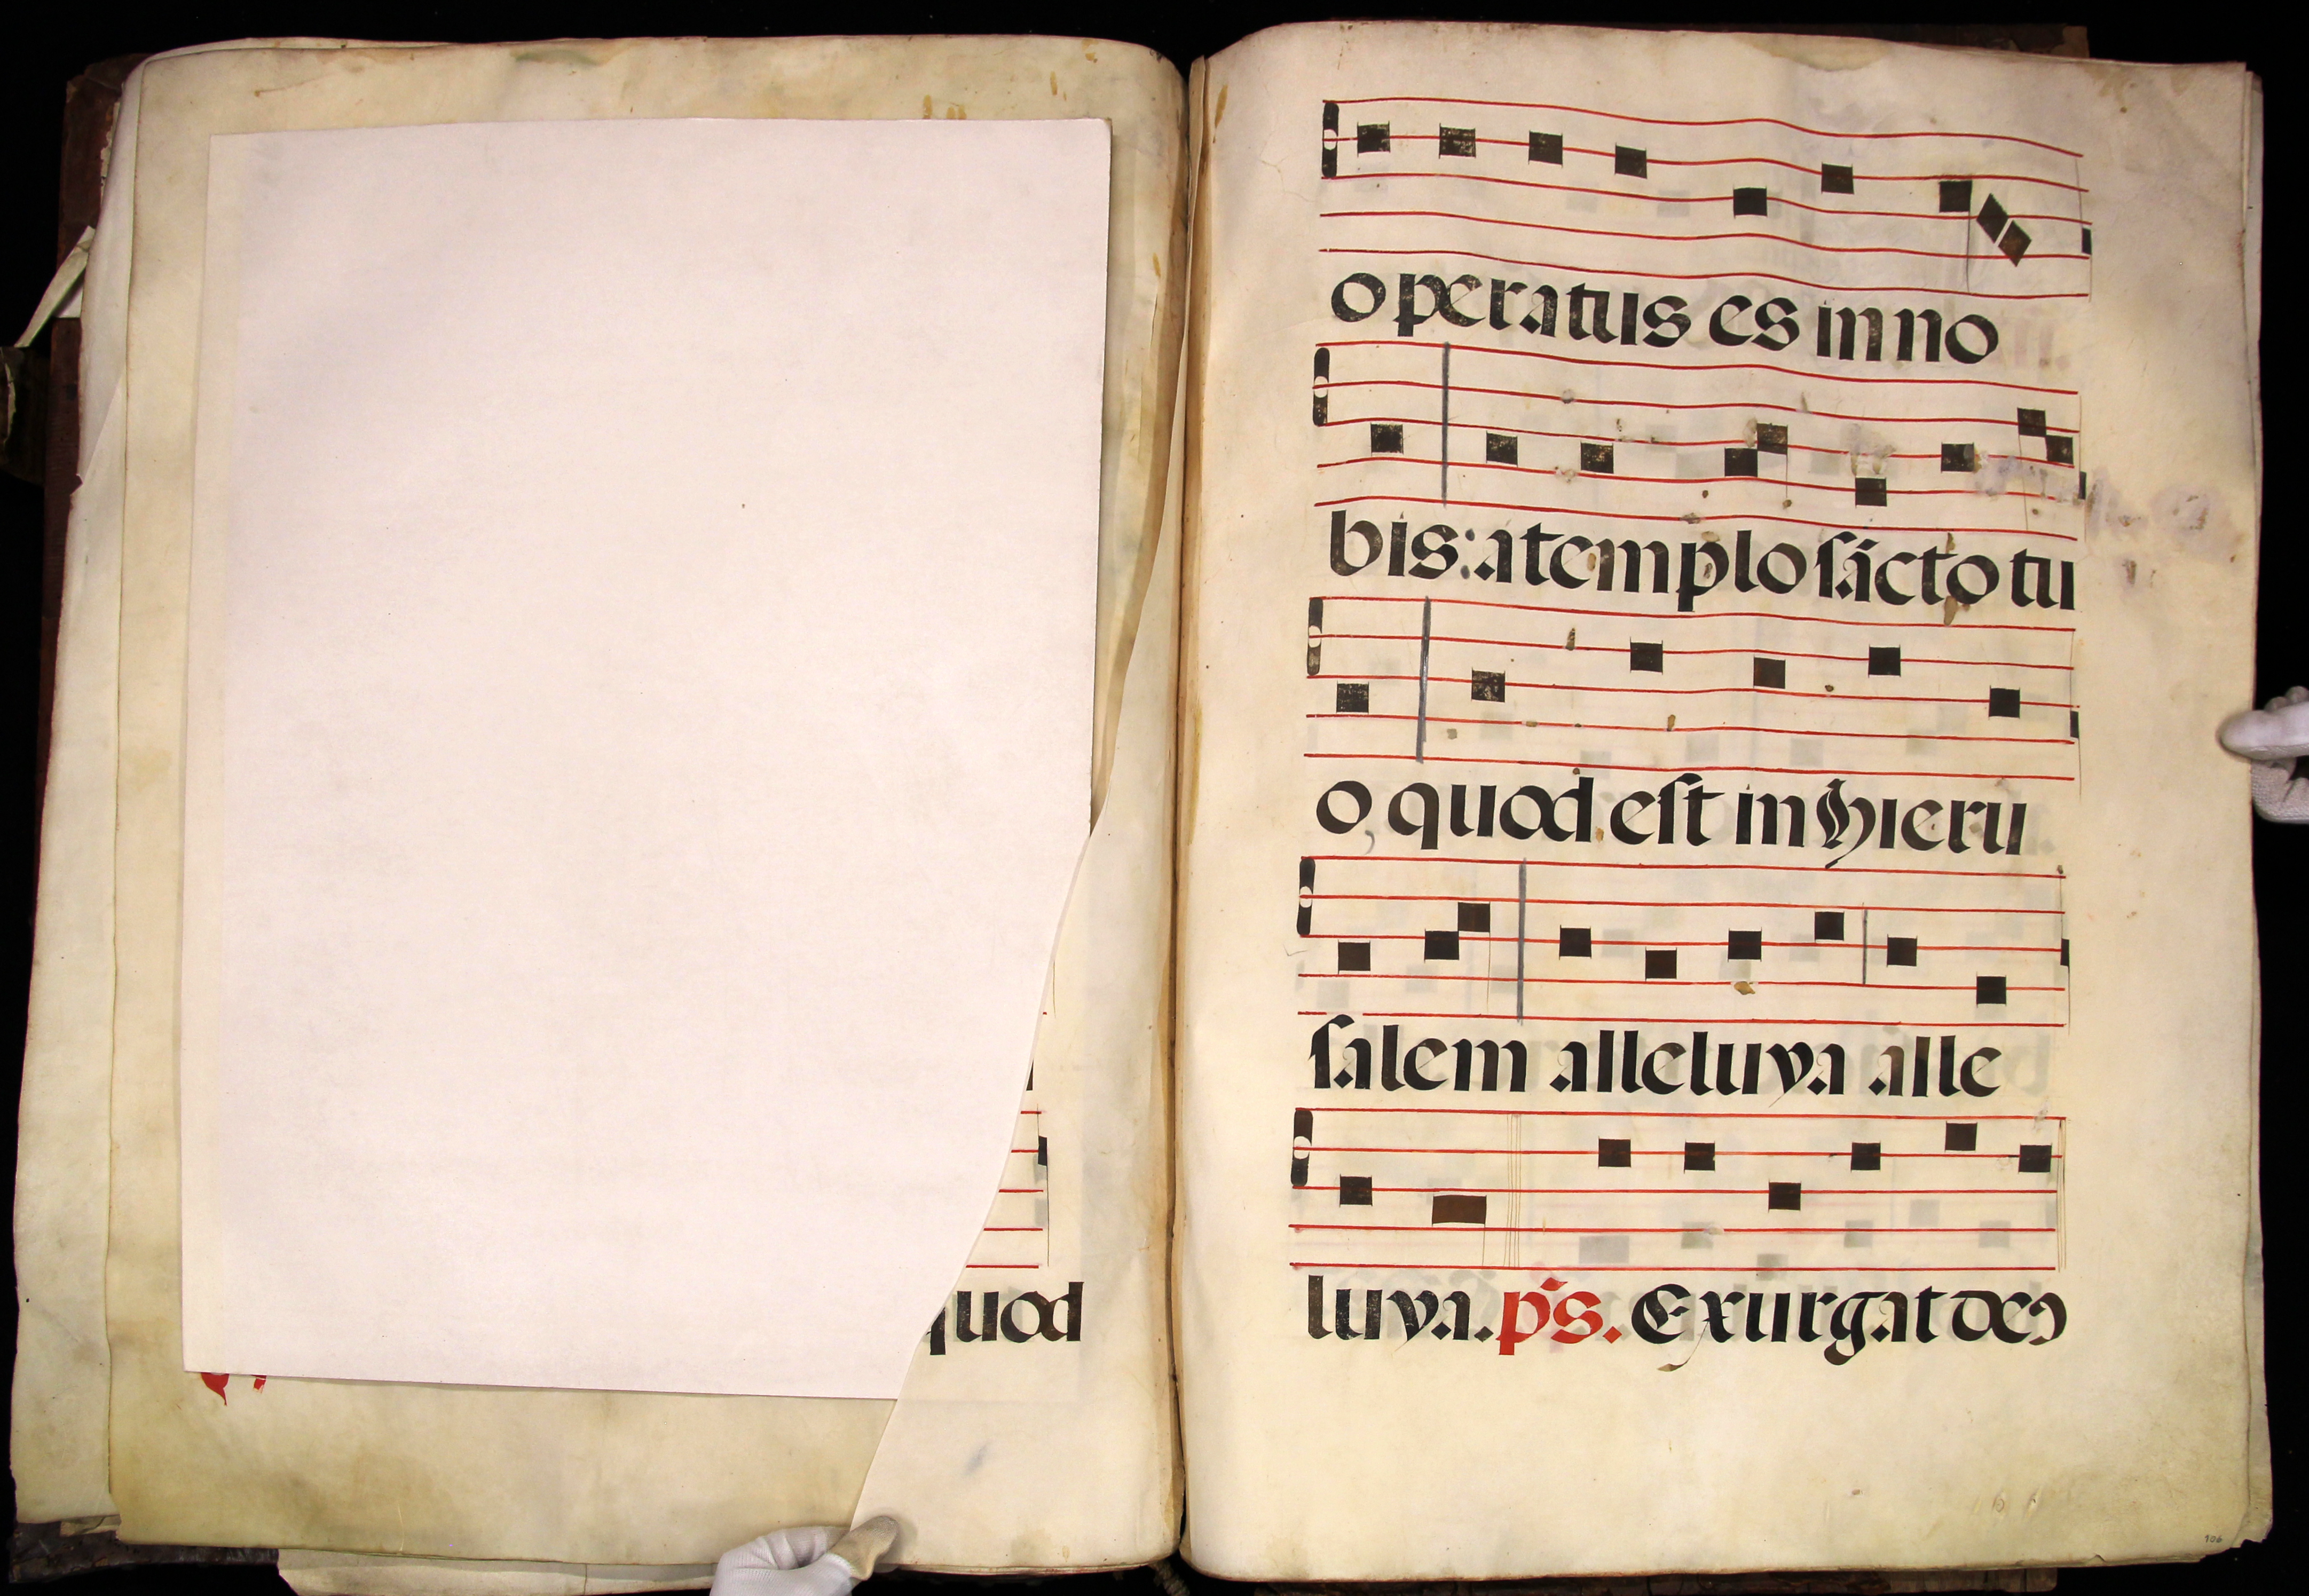 quod
operatus es in no
bis: a templo sācto tu
o, quod est in hieru
salem alleluya alle
luya. p̄s. Exurgat deꝰ